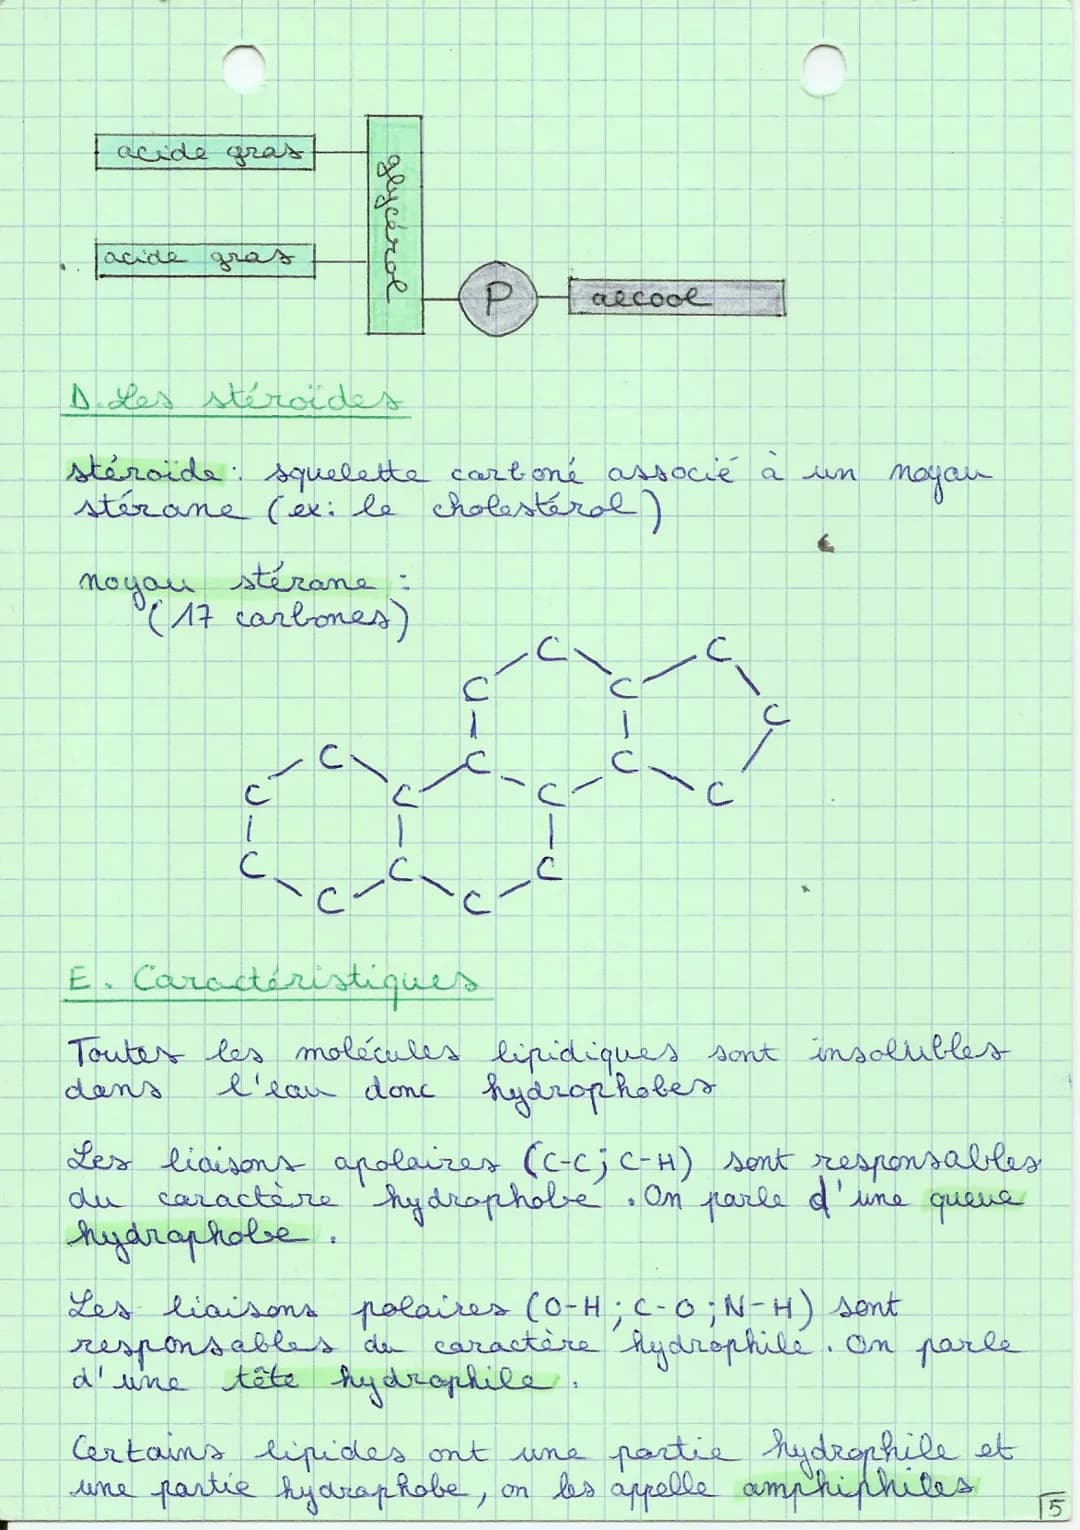 acide gras
glycérol
acide gras
P
alcool
D. Les stéroïdes
stéroïde : squelette carboné associé à un noyau
stérane (ex: le cholestérol)
noyau stérane :
(17 carbones)
C C
C C
C
C C C
C C C
C C C
C C
E. Caractéristiques
Toutes les molécules lipidiques sont insolubles
dans l'eau donc hydrophobes
Les liaisons apolaires (C-C; C-H) sont responsables
du caractère hydrophobe. On parle d'une queue
hydrophobe.
Les liaisons polaires (O-H; C-O; N-H) sont
responsables du caractère hydrophile. On parle
d'une tête hydrophile.
Certains lipides ont une partie hydrophile et
une partie hydrophobe, on les appelle amphiphiles
5